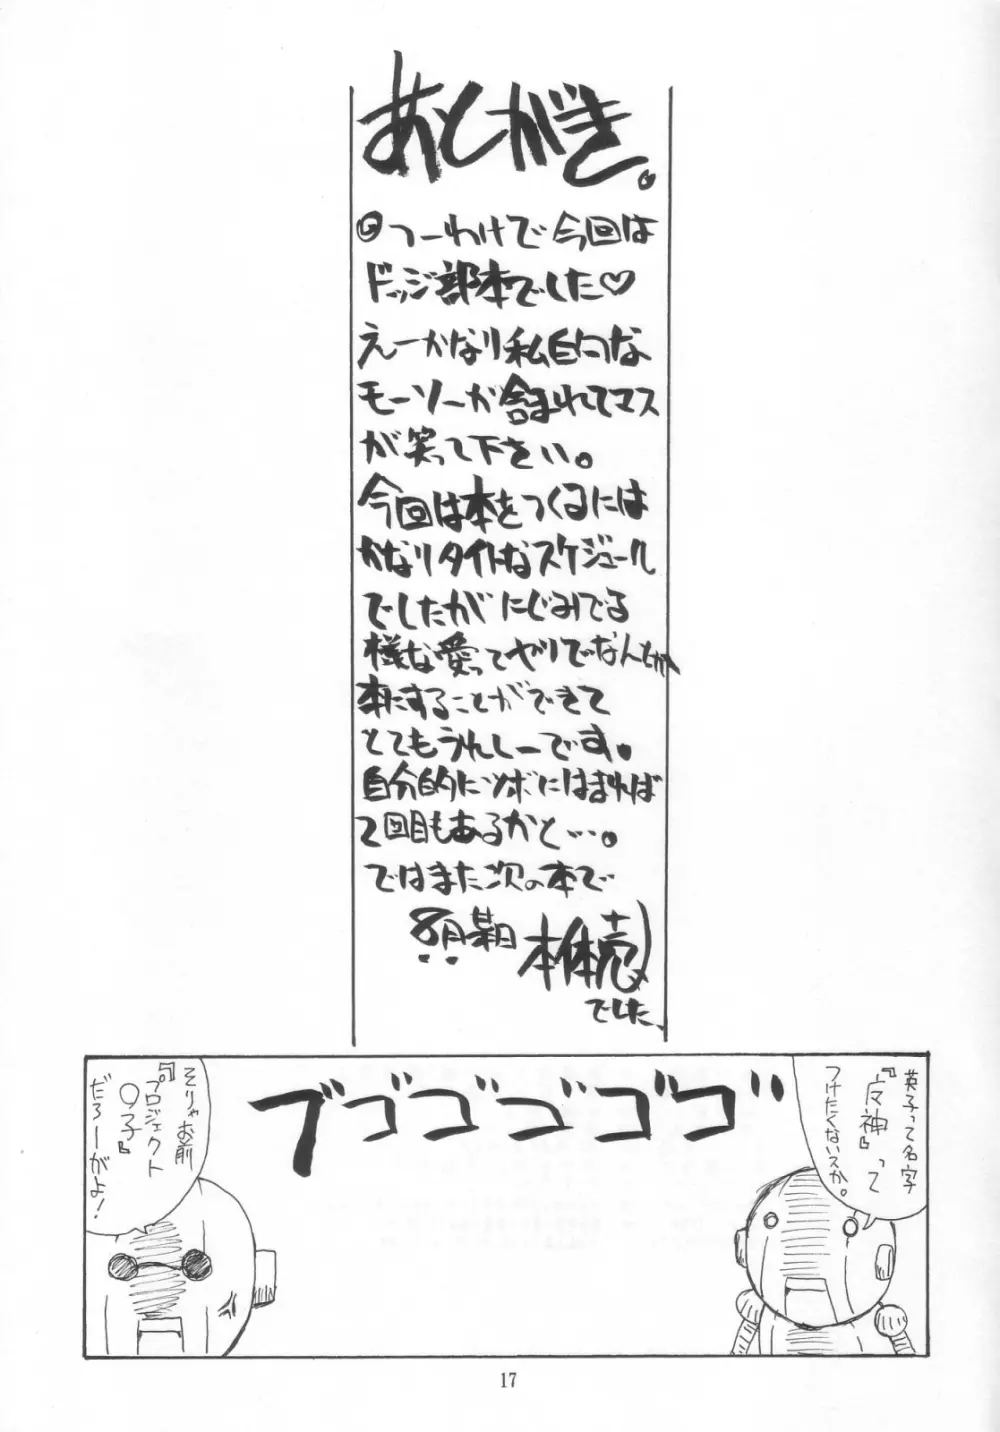 あとがき。
つーわけで今回は
ドッジ部本でした♡
えーかなり私的な
モーソーが含まれてマス
が笑って下さい。
今回は本をつくるには
かなりタイトなスケジュール
でしたがにじみでる
様な愛ってヤツでなんとか
本にすることができて
とてもうれしーです。
自分的にツボにはまれば
2回目もあるかと…。
ではまた次の本で
8月某日 本体売
でした。
英子って名字
『皮神』って
つけたくないスか。
ブゴゴゴゴゴ
そりゃお前
『プロジェクト
○子』
だろーがよ!
17